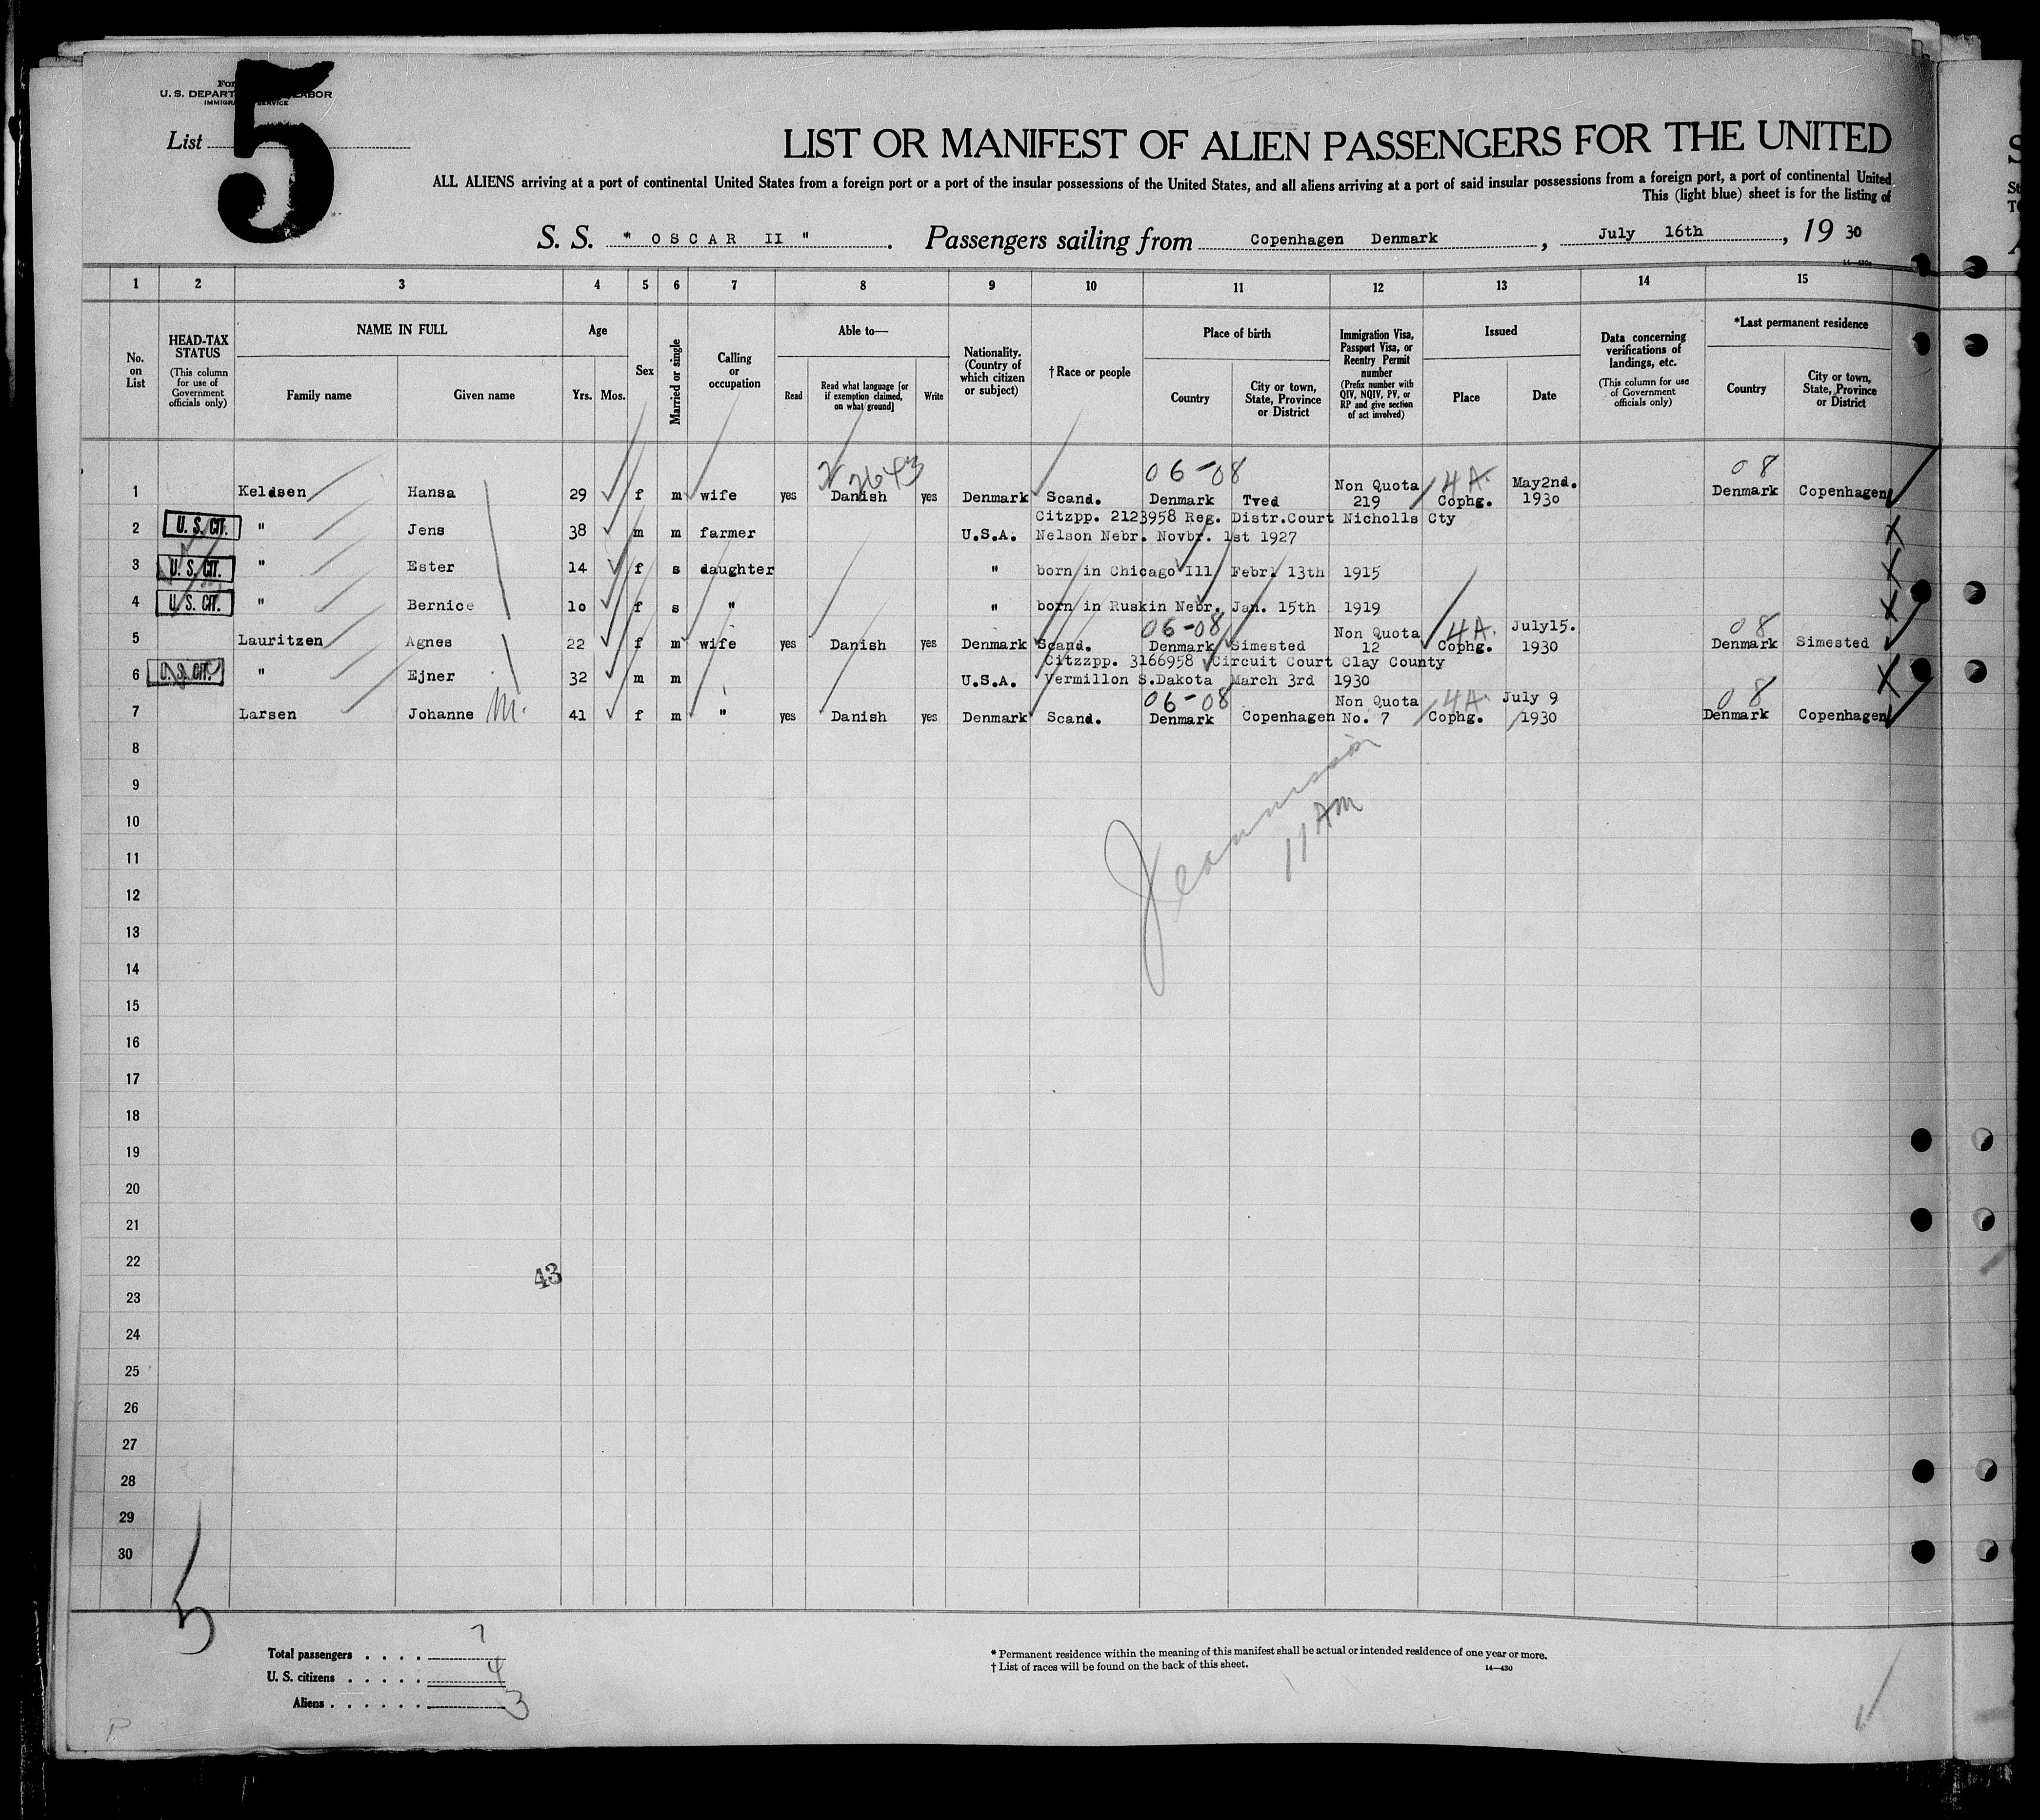 For
U. S. DEPART LABOR
IMMIGRA SERVICE
List 5
LIST OR MANIFEST OF ALIEN PASSENGERS FOR THE UNITED
ALL ALIENS arriving at a port of continental United States from a foreign port or a port of the insular possessions of the United States, and all aliens arriving at a port of said insular possessions from a foreign port, a port of continental United
This (light blue) sheet is for the listing of
S. S. " OSCAR II " . Passengers sailing from Copenhagen Denmark , July 16th , 19 30
14-430a
1 2 3 4 5 6 7 8 9 10 11 12 13 14 15
No. on List
HEAD-TAX STATUS
(This column for use of Government officials only)
NAME IN FULL
Family name Given name
Age
Yrs. Mos.
Sex
Married or single
Calling or occupation
Able to—
Read
Read what language [or if exemption claimed, on what ground]
Write
Nationality. (Country of which citizen or subject)
†Race or people
Place of birth
Country
City or town, State, Province or District
Immigration Visa, Passport Visa, or Reentry Permit number
(Prefix number with QIV, NQIV, PV, or RP and give section of act involved)
Issued
Place Date
Data concerning verifications of landings, etc.
(This column for use of Government officials only)
*Last permanent residence
Country
City or town, State, Province or District
2643 06-08 4A. 08
1 Keldsen Hansa 29 f m wife yes Danish yes Denmark Scand. Denmark Tved Non Quota 219 Cophg. May2nd. 1930 Denmark Copenhagen
Citzpp. 2123958 Reg. Distr.Court Nicholls Cty
2 U. S. CIT. " Jens 38 m m farmer U.S.A. Nelson Nebr. Novbr. 1st 1927
3 U. S. CIT. " Ester 14 f s daughter " born in Chicago Ill Febr. 13th 1915
4 U. S. CIT. " Bernice 10 f s " " born in Ruskin Nebr. Jan. 15th 1919
06-08 4A. 08
5 Lauritzen Agnes 22 f m wife yes Danish yes Denmark Scand. Denmark Simested Non Quota 12 Cophg. July15. 1930 Denmark Simested
Citzzpp. 3166958 Circuit Court Clay County
6 U. S. CIT. " Ejner 32 m m U.S.A. Vermillon S.Dakota March 3rd 1930
06-08 4A. 08
7 Larsen Johanne M. 41 f m " yes Danish yes Denmark Scand. Denmark Copenhagen Non Quota No. 7 Cophg. July 9 1930 Denmark Copenhagen
8
9
10
11 AM
11
12
13
14
15
16
17
18
19
20
21
22
43
23
24
25
26
27
28
29
30
5
Total passengers . . . . 7
U. S. citizens . . . . . 4
Aliens . . . . . . 3
* Permanent residence within the meaning of this manifest shall be actual or intended residence of one year or more.
† List of races will be found on the back of this sheet.
14-430
P